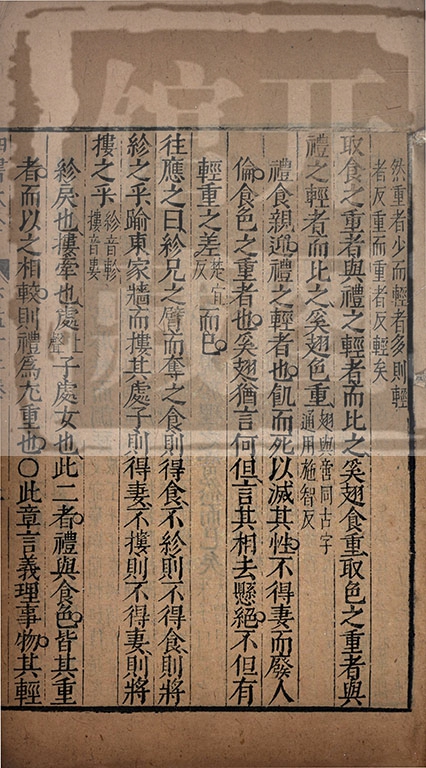 然重者少而輕者多則輕
者反重而重者反輕矣
取食之重者與禮之輕者而比之奚翅食重取色之重者與
禮之輕者而比之奚翅色重翅與啻同古字
通用施智反
禮食親迎禮之輕者也飢而死以滅其性不得妻而廢人
倫食色之重者也奚翅猶言何但言其相去懸絕不但有
輕重之差楚宜
反而已
往應之曰紾兄之臂而奪之食則得食不紾則不得食則將
紾之乎踰東家牆而摟其處子則得妻不摟則不得妻則將
摟之乎紾音軫
摟音婁
紾戾也摟牽也處上
聲子處女也此二者禮與食色皆其重
者而以之相較則禮為尤重也○此章言義理事物其輕